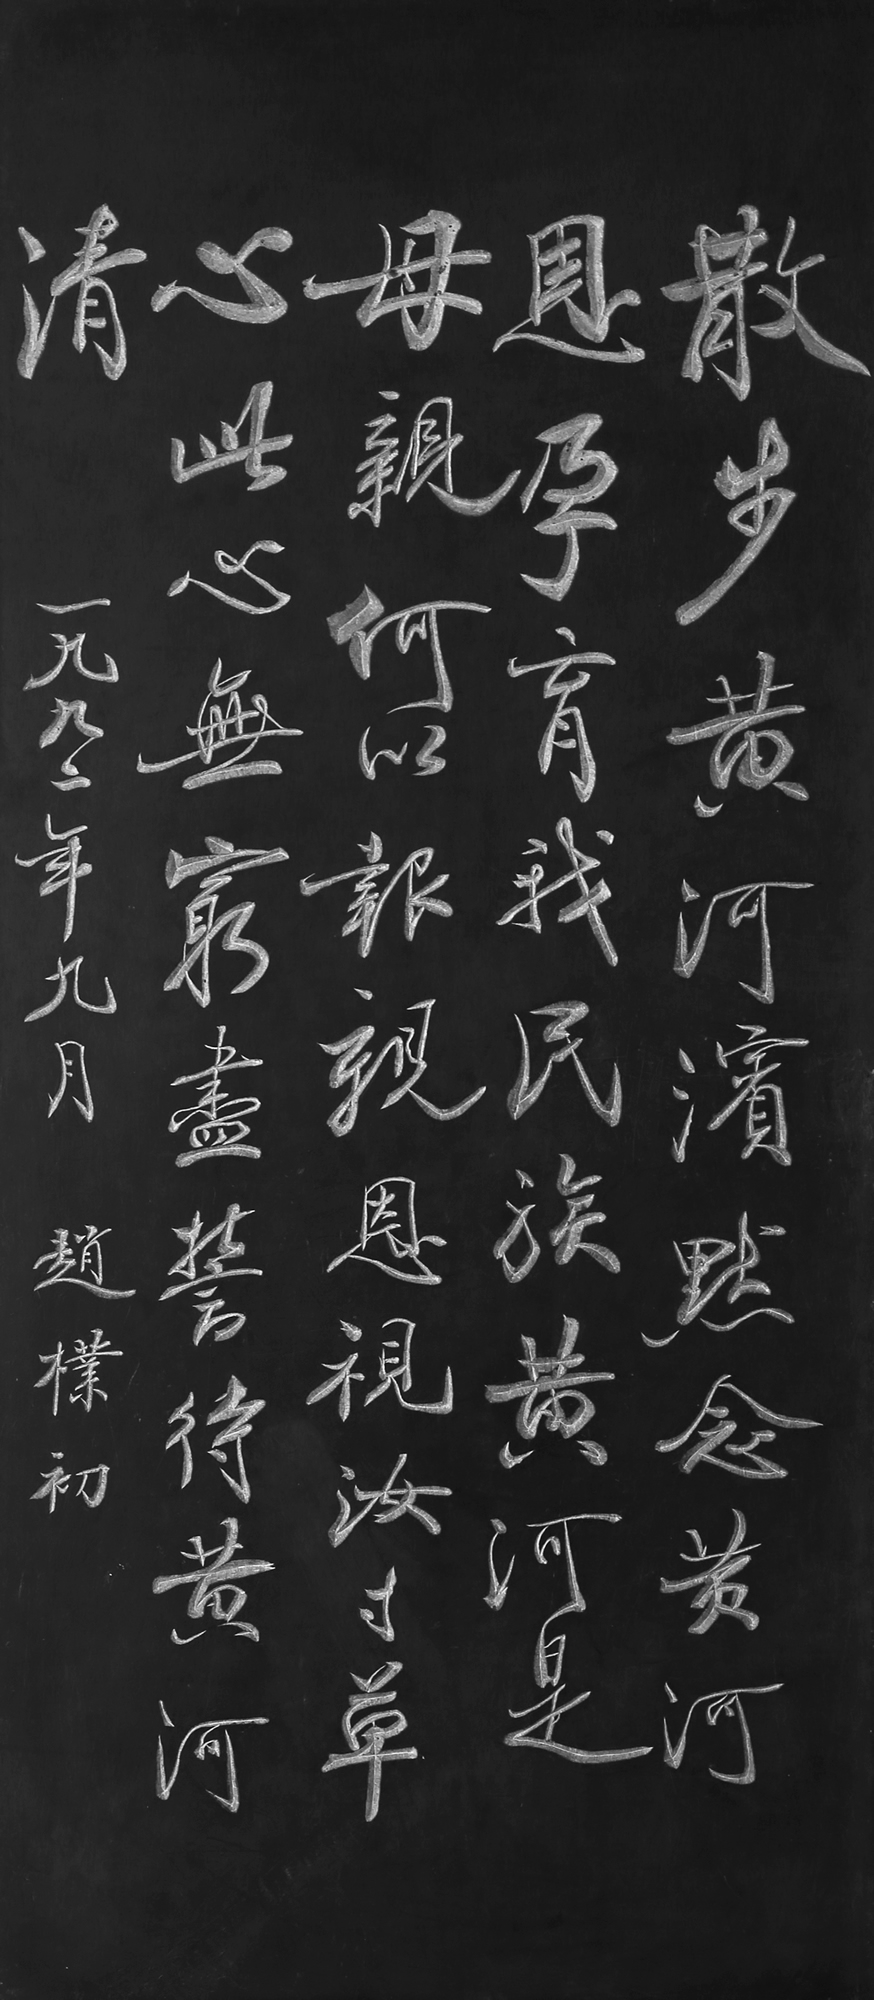 散步黄河濱默念黄河
恩孕育我民族黄河是
母親何以報親恩視汝寸草
心此心無窮盡誓待黄河
清
一九九二年九月 趙樸初